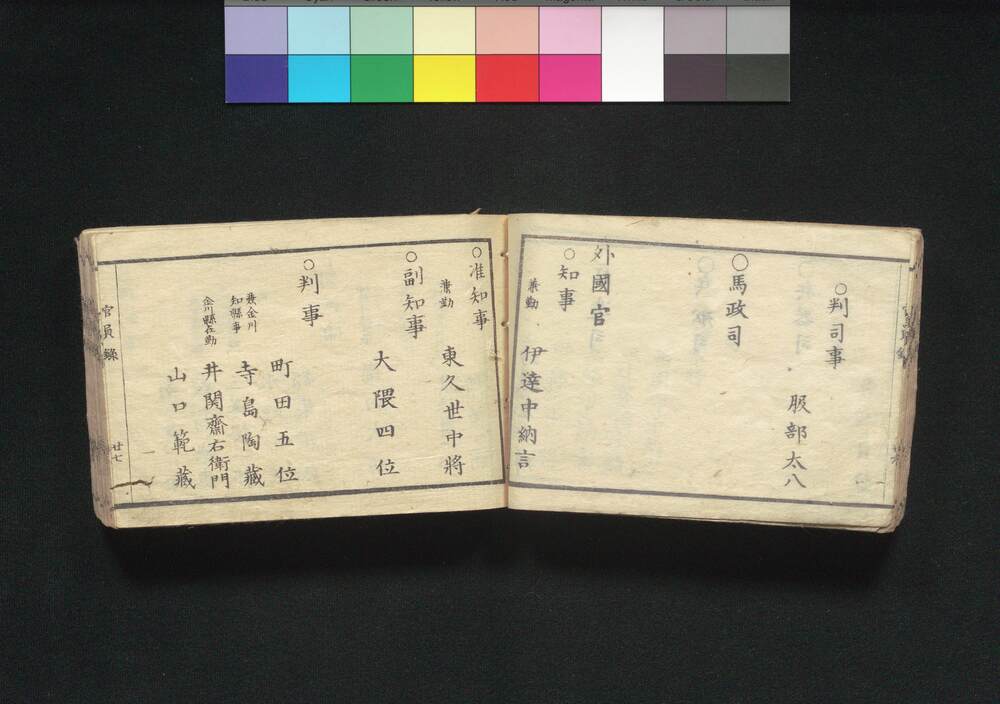 ○判司事
服部太八
○馬政司
外國官
○知事
兼勤 伊達中納言
○准知事
兼勤 東久世中將
○副知事
大隈四位
○判事
町田五位
兼金川知縣事 寺島陶藏
金川縣在勤 井関齋右衛門
山口範藏
官員錄 廿七